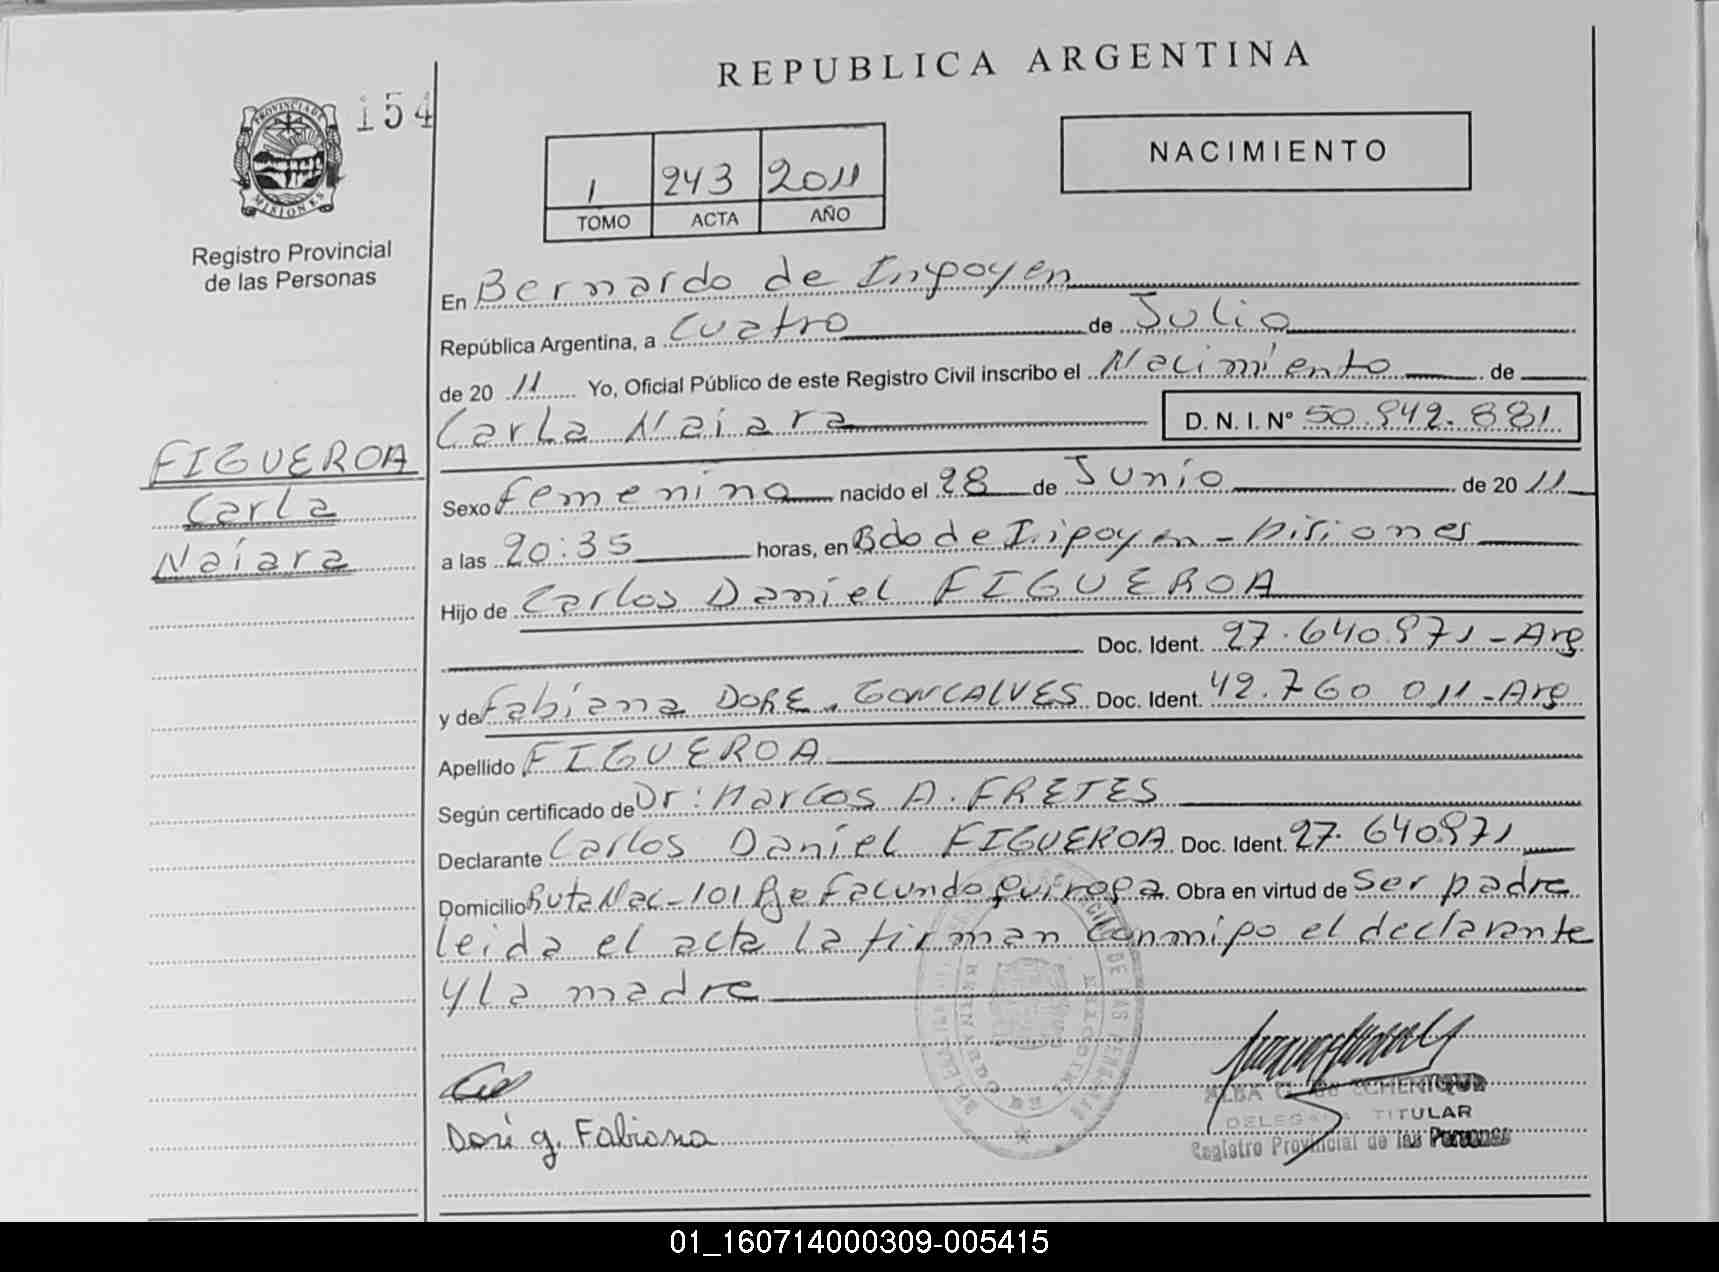 REPUBLICA ARGENTINA
PROVINCIA DE
MISIONES
154
Registro Provincial
de las Personas
1 243 2011
TOMO ACTA AÑO
NACIMIENTO
En Bernardo de Irigoyen
República Argentina, a Cuatro de Julio
de 2011 Yo, Oficial Público de este Registro Civil inscribo el Nacimiento de
Carla Naiara D. N. I. N° 50.842.881
FIGUEROA
Carla
Naíara
Sexo femenino nacido el 28 de Junio de 2011
a las 20:35 horas, en Bdo de Irigoyen - Misiones
Hijo de Carlos Daniel FIGUEROA
Doc. Ident. 27.640.971 - Arg
y de Fabiana DORE. GONCALVES Doc. Ident. 42.760 011 - Arg
Apellido FIGUEROA
Según certificado de Dr: Marcos A. FRETES
Declarante Carlos Daniel FIGUEROA Doc. Ident. 27.640971
Domicilio Ruta Nac-101 Bº Facundo quiroga Obra en virtud de Ser padre
leida el acta la firman Conmigo el declarante
y la madre
Doré g. Fabiana
ALBA
DELEGADA TITULAR
Registro Provincial de las Personas
01_160714000309-005415